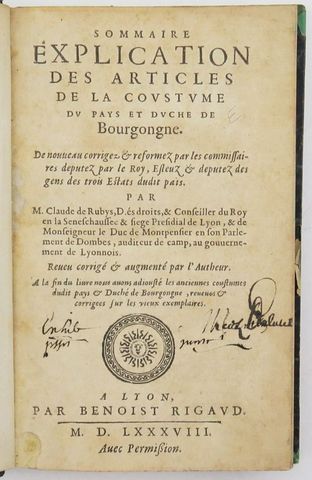 SOMMAIRE
EXPLICATION
DES ARTICLES
DE LA COVSTVME
DV PAYS ET DVCHE DE
Bourgongne.
De nouueau corrigez & reformez par les commissai-
res deputez par le Roy, Esleuz & deputez des
gens des trois Estats dudit païs.
PAR
M. Claude de Rubys, D. és droits, & Conseiller du Roy
en la Seneschaussee & siege Presidial de Lyon, & de
Monseigneur le Duc de Montpensier en son Parle-
ment de Dombes, auditeur de camp, au gouuerne-
ment de Lyonnois.
Reueu corrigé & augmenté par l'Autheur.
A la fin du liure nous auons adiousté les anciennes coustumes
dudit pays & Duché de Bourgongne, reueuës &
corrigees sur les vieux exemplaires.
A LYON,
PAR BENOIST RIGAVD.
M. D. LXXXVIII.
Auec Permißion.